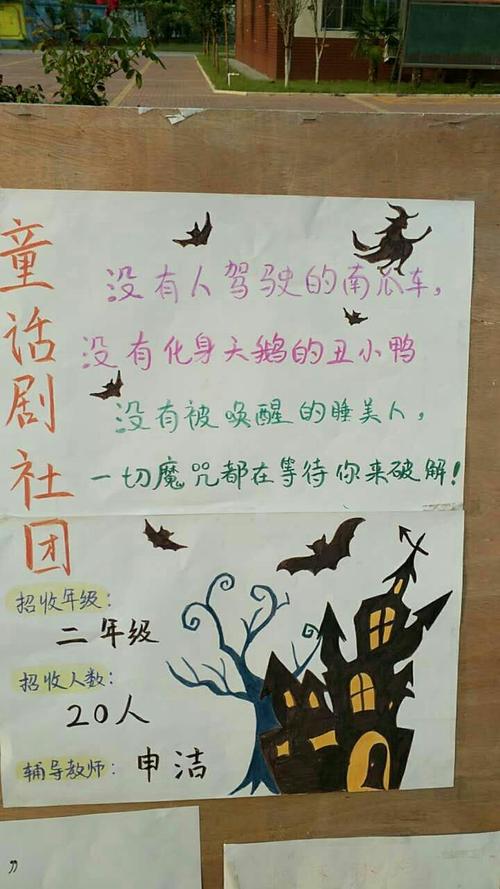 童话剧社团
没有人驾驶的南瓜车，
没有化身天鹅的丑小鸭
没有被唤醒的睡美人，
一切魔咒都在等待你来破解！
招收年级：
二年级
招收人数：
20人
辅导教师：申洁